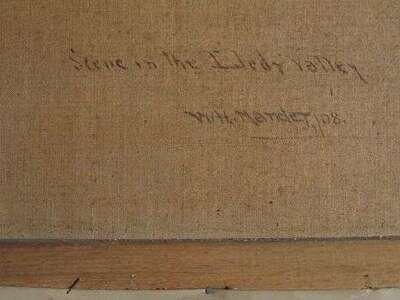 Scene in the Lledr Valley
W.H. Mander /08.